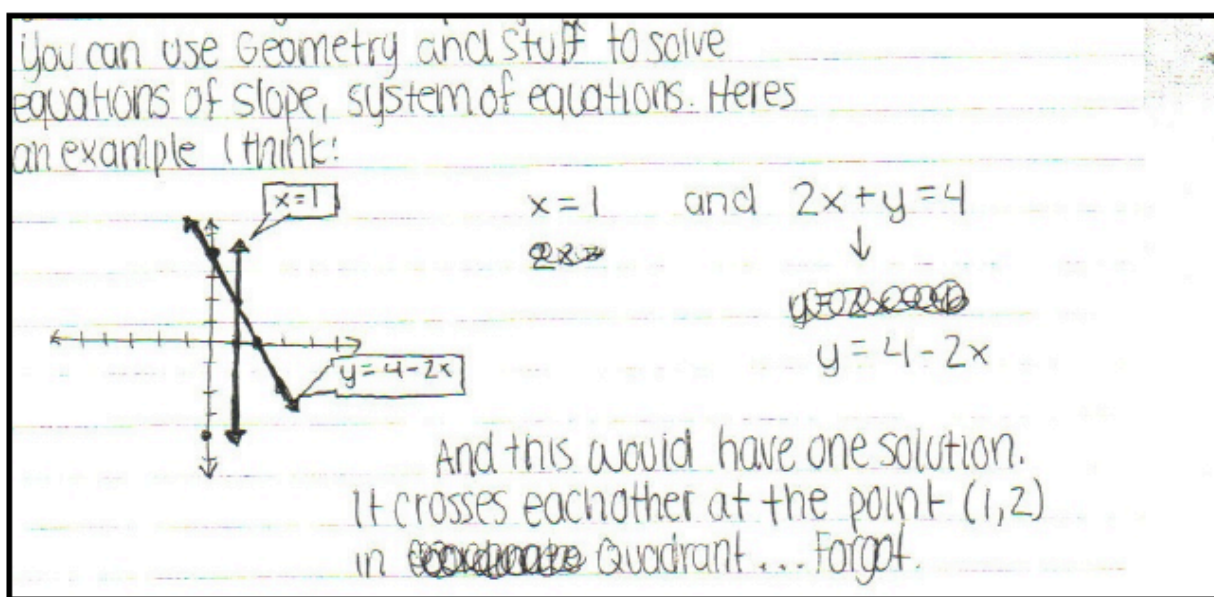 You can use Geometry and stuff to solve
equations of slope, system of equations. Heres
an example I think:
x=1
x = 1 and 2x + y = 4
y = 4 - 2x
y = 4 - 2x
And this would have one solution.
It crosses eachother at the point (1,2)
in Quadrant.... Forgot